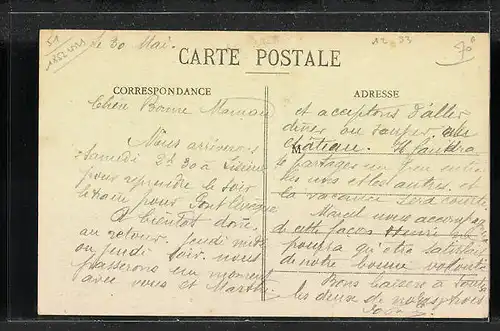 le 30 Mai.
CARTE POSTALE
CORRESPONDANCE
ADRESSE
Chère Bonne Maman
Nous arriverons
samedi 2h30 à
pour reprendre le soir
le train pour Pont l'évêque
A bientôt donc,
au retour. Jeudi midi
ou jeudi soir, nous
passerons un moment
avec vous et Marthe
et acceptons d'aller
diner ou souper au
château. Il faudra
M
se partager un peu entre
les uns et les autres et
la vacance sera courte
Marcel nous accompagne
de cette façon Henri
pourra qu'être satisfait
de notre bonne volonté
Bons baisers à tous
les deux de nous trois